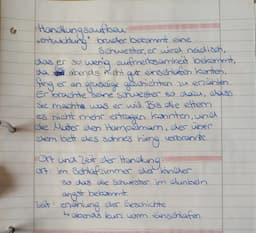 Handlungsaufbau
"entwicklung" bruder bekommt eine
Schwester, er wird neidisch,
das er zu wenig aufmerksamkeit bekommt,
da abends nicht gut einschlafen konnten,
fing er an gruselige geschichten zu erzählen.
Er brachte seine schwester so dazu, dass
Sie machte was er will. Bis die eltern
es nicht mehr ertragen konnten, und
die Mutter den Hampelmann, der über
dem bett des sohnes hing verbrannte.
Ort und Zeit der Handlung
ort: im Schlafzimmer der kinder
so das die Schwester im dunkeln
angst bekommt
Zeit: erzählung der Geschichte
↳ abends kurz vorm einschlafen